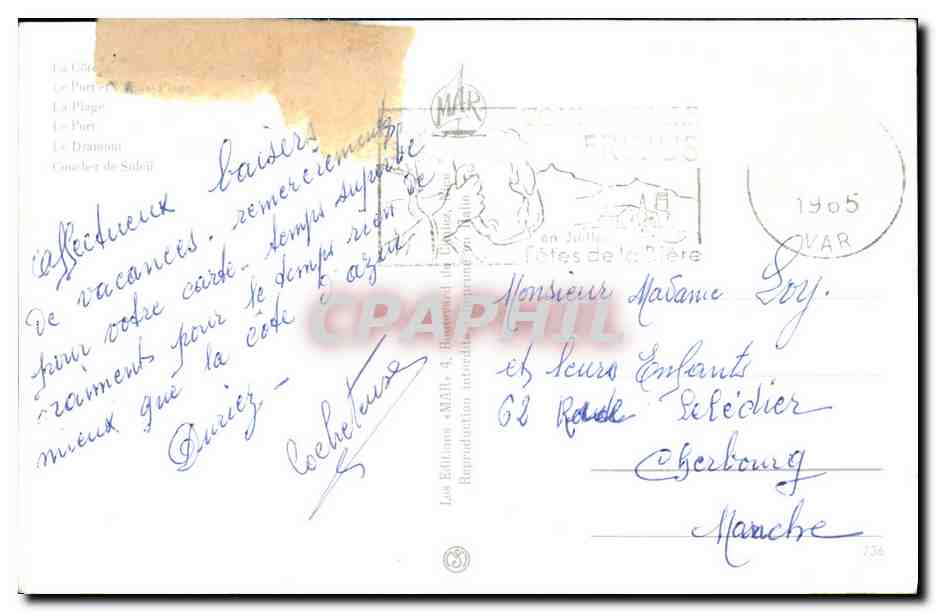 La Côte
Le Port et
La Plage
Le Port
Le Dramont
Coucher de Soleil
affectueux baisers
de vacances. remerciements
pour votre carte. temps superbe
vraiments pour le temps rien de
mieux que la côte d'azur
Duriez
MAR
FREJUS
en Juillet
Fêtes de la Bière
1965
VAR
Monsieur Madame Loy.
et leurs Enfants
62 Rue
Cherbourg
Manche
736
Les Editions «MAR» 4, Boulevard du
Reproduction interdite Imprimé en Italie
CPAPHIL